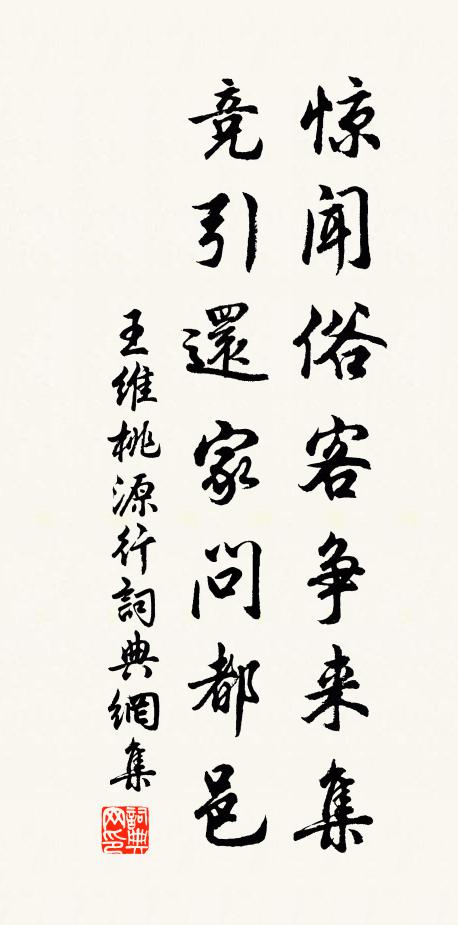 惊闻俗客争来集
竞引還家问都邑
王维桃源行詞典網集
詞典网印